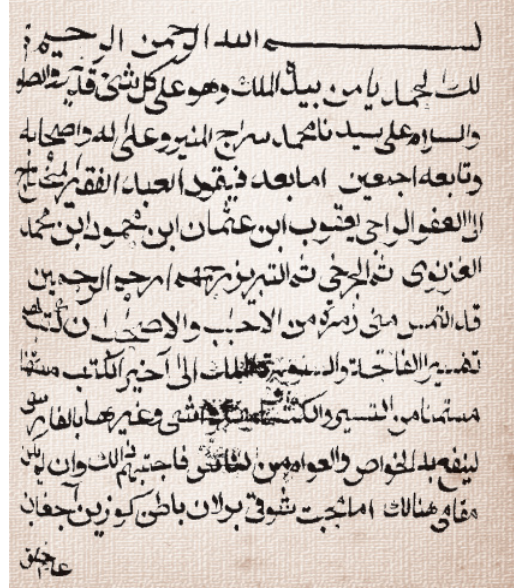 بسم الله الرحمن الرحيم
لك الحمد يا من بيده الملك وهو على كل شئ قدير والصلوة
والسلام على سيدنا محمد سراج المنير وعلى اله واصحابه
وتابعه اجمعين اما بعد فيقول العبد الفقير المحتاج
الى العفو الراجى يعقوب ابن عثمان ابن محمود ابن محمد
الغزنوى ثم الچرخى ثم التبريز رحمهم ارحم الرحمين
قد التمس منى زمرة من الاحباب والاصحاب ان اكتب
تفسير الفاتحة والسورة الملك الى آخير الكتب
من التسير والكشاف وغيرهما بالفارسى
لينفع به الخواص والعوام من الناس فاجبتهم لذلك وان لم يكن
مقامى هنالك اما بجت شوقى برلان باطن كوزين اجغان